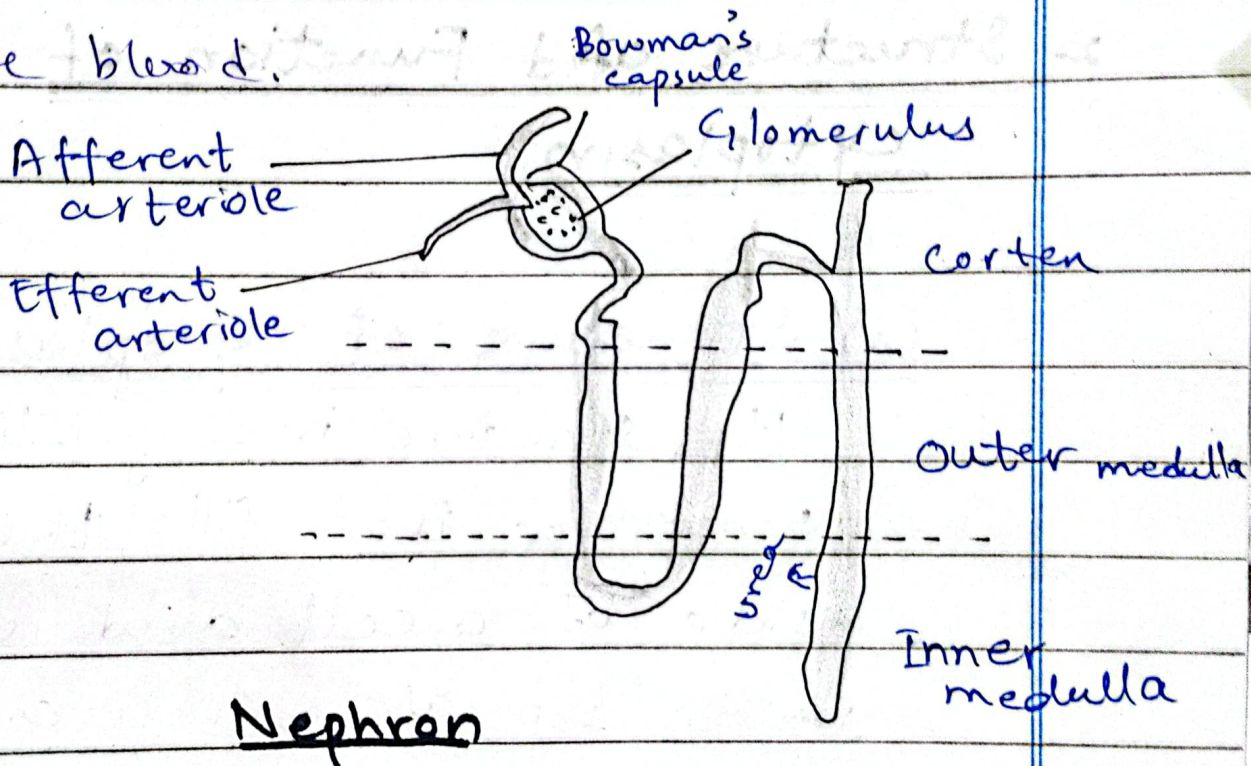 e blood.
Bowman's
capsule
Glomerulus
Afferent
arteriole
Efferent
arteriole
Corten
Outer medulla
urea
Inner
medulla
Nephron